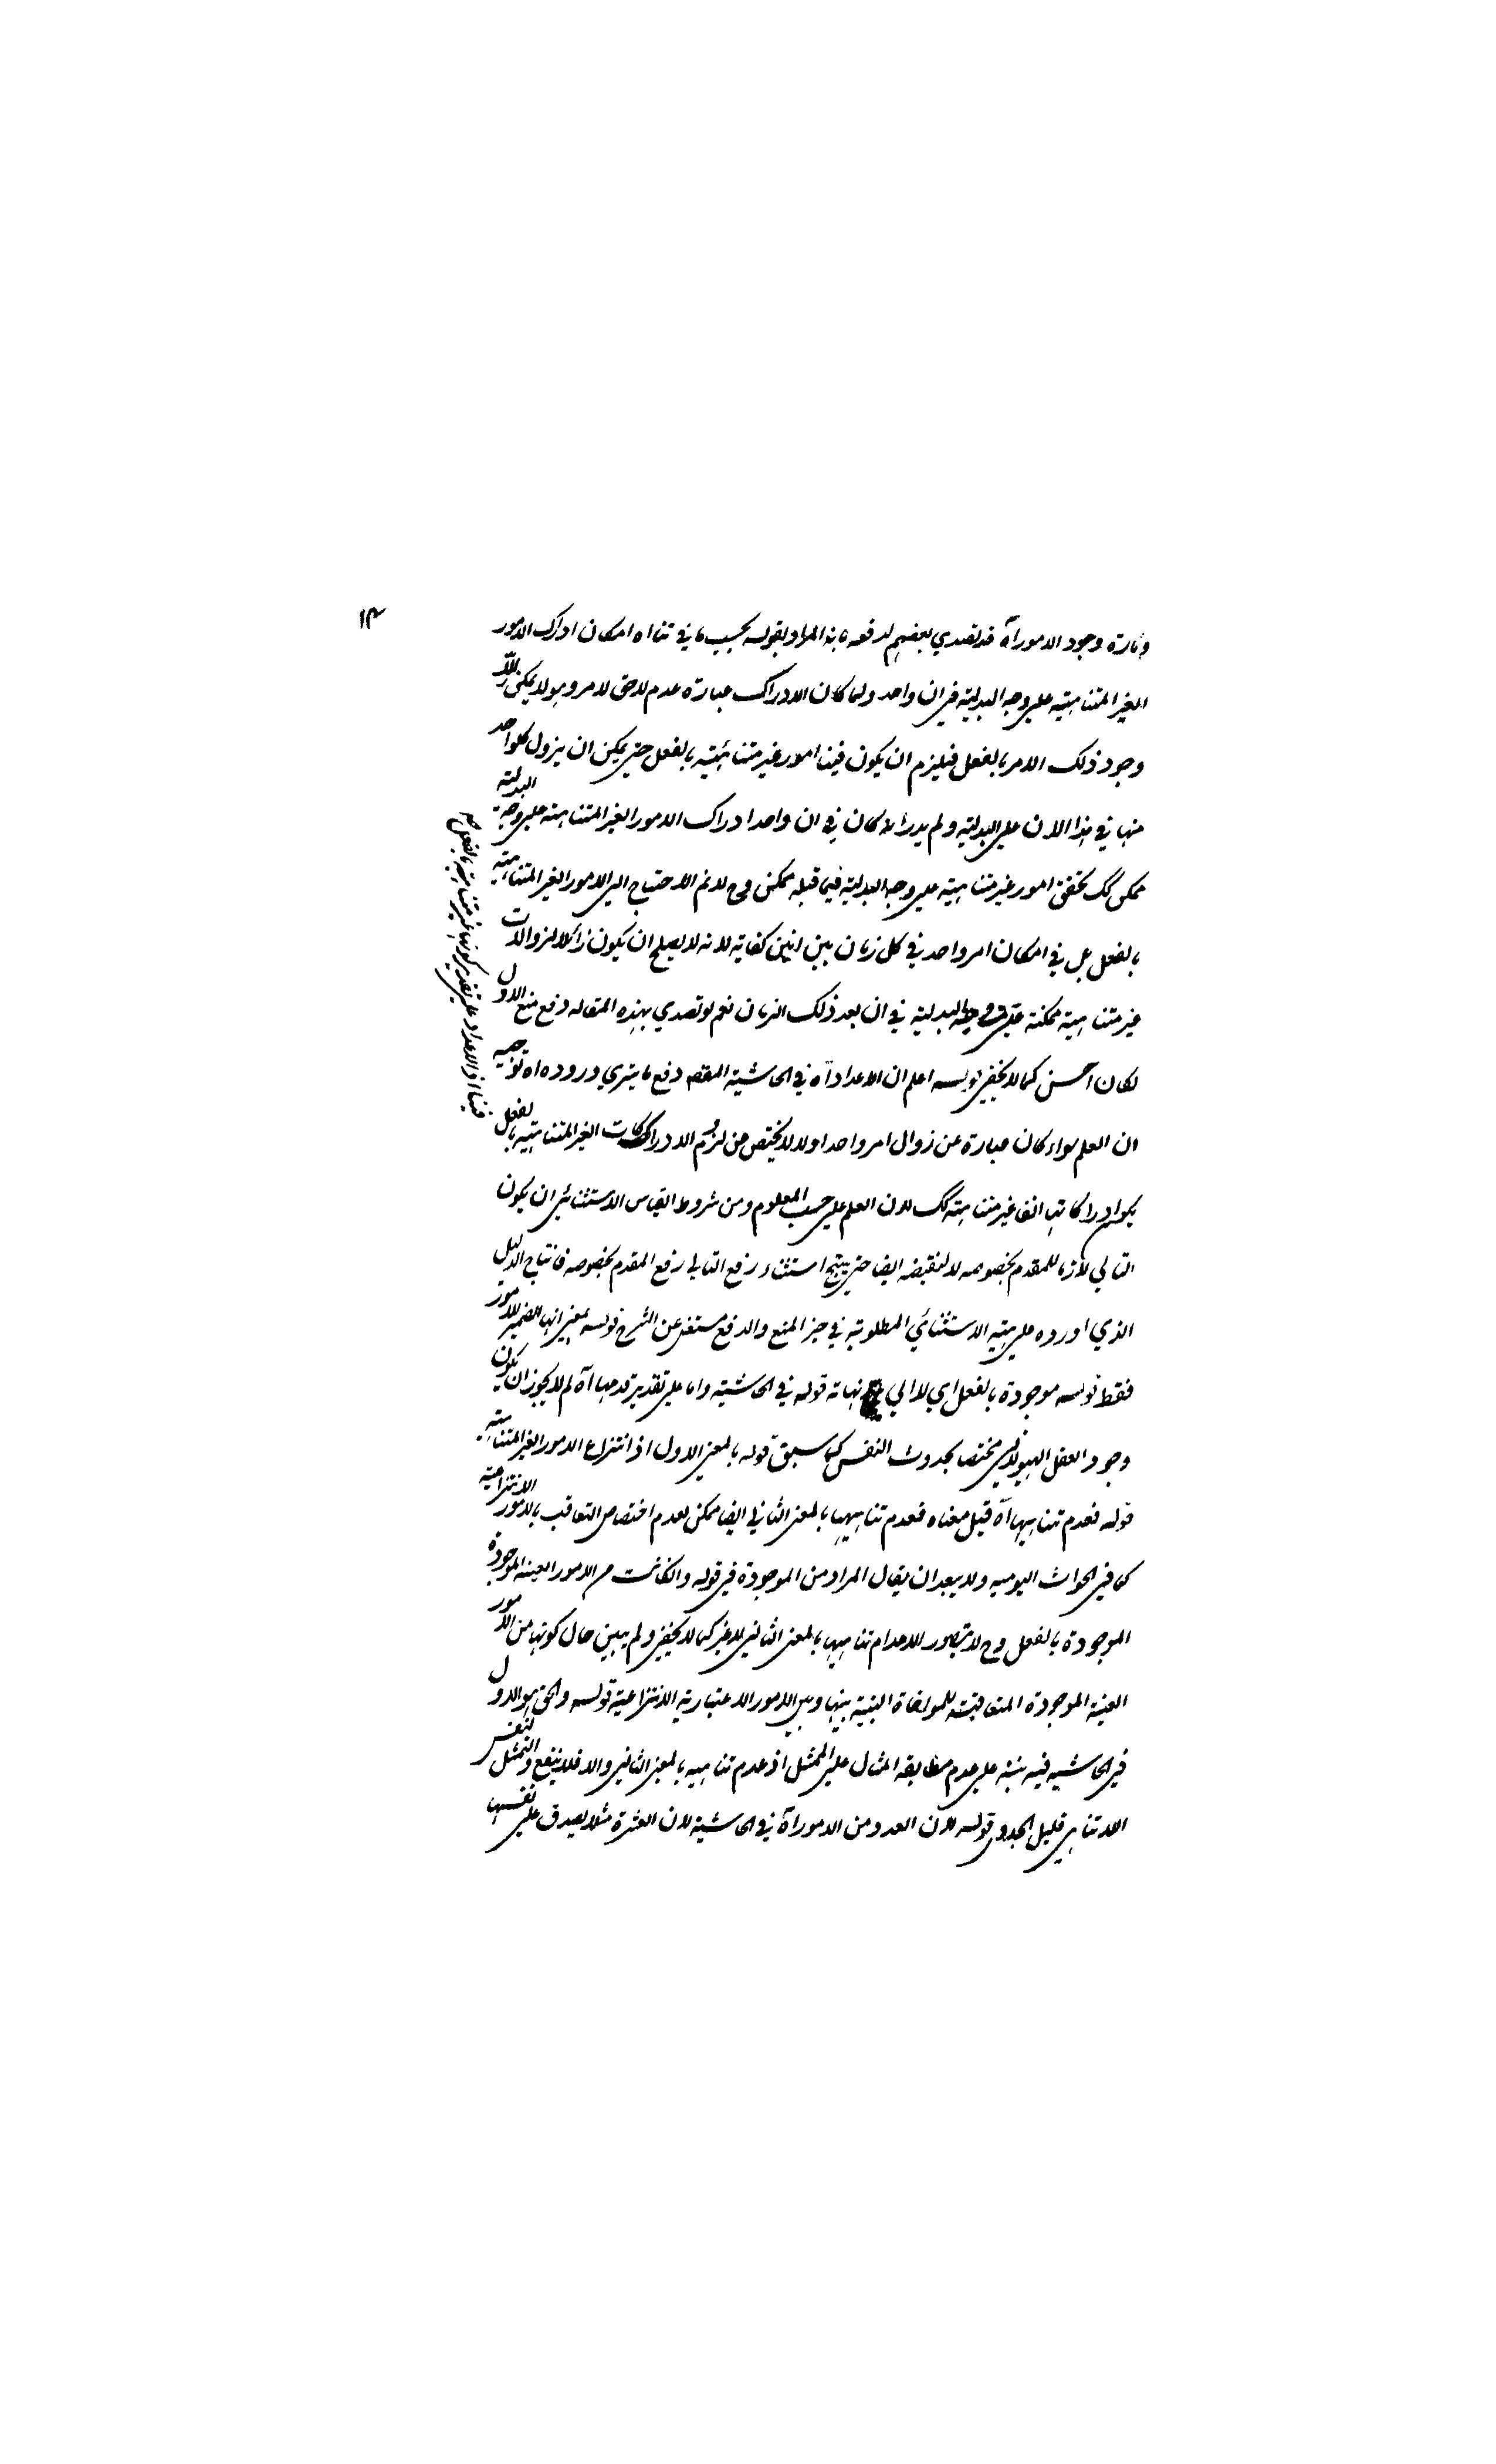 ١٣
وتارة وجود الامور آه قد تصدي بعضهم لدفعه بانه المراد بقوله بحسب ما في تناه امكان ادراك الامور
الغير المتناهية علي وجه البدلية في ان واحد ولما كان الادراك عبارة عدم لاحق لامر وهو لا يمكن الا
وجود ذلك الامر بالفعل فيلزم ان يكون فينا امور غير متناهية بالفعل حتي يمكن ان يزول كلواحد
منها في هذا الان علي البدلية ولم يدر انه كان في ان واحد ادراك الامور الغير المتناهية علي وجه البدلية
ممكن كك تحقق امور غير متناهية علي وجه البدلية فيما قبله ممكن وح لا نم الاحتياج الي الامور الغير المتناهية
بالفعل بل في امكان امر واحد في كل زمان بين انين كفاية لانه لا يصلح ان يكون زائلا لزوالات
غير متناهية ممكنة علي وجه البدلية في ان بعد ذلك الزمان نعم لو تصدي بهذه المقاله دفع منع الاول
لكان احسن كما لا يخفي قوله اعلم ان الاعداد آه في الحاشية المقصد دفع ما يتري وروده اه توجيه
ان العلم سواء كان عبارة عن زوال امر واحد او لا لا يختص من لزوم الادراكات الغير المتناهية بالفعل
يكون ادراكاتها ايضا غير متناهية كك لان العلم علي حسب المعلوم ومن شروط القياس الاستثنائي ان يكون
التالي لازما للمقدم بخصوصه لا لنقيضه ايضا حتي ينتج استثناء رفع التالي رفع المقدم بخصوصه فانتاج الدليل
الذي اورده علي هيئة الاستثنائي المطلوبة في حيز المنع والدفع مستغن عن الشرح قوله بمعني انها الضمير للامور
فقط قوله موجودة بالفعل اي لا الي نهاية قوله في الحاشية واما علي تقدير قدمها آه لم لا يجوز ان يكون
وجود العقل الهيولاني مختصا بحدوث النفس كما سبق قوله بالمعني الاول اذ انتزاع الامور الغير المتناهية
قوله فعدم تناهيها آه قيل معناه فعدم تناهيها بالمعني الثاني ايضا ممكن لعدم اختصاص التعاقب بالامور الانتزاعية
كما في الحوادث اليومية ولا يبعد ان يقال المراد من الموجودة في قوله وان كانت من الامور العينية الموجودة
الموجودة بالفعل وح لا يتصور للاعدام تناهيها بالمعني الثاني لا غير كما لا يخفي ولم يبين حال كونها من الامور
العينية الموجودة المتعاقبة للمواخاة البينية بينها وبين الامور الاعتبارية الانتزاعية قوله والحق هو الاول
في الحاشية فيه تنبيه علي عدم مطابقة المثال علي الممثل اذ عدم تناهيه بالمعني الثاني والا فلا ينفع والتمثل لنفس
اللاتناهي قليل الجدوي قوله لان العدد من الامور آه في الحاشية لان العشرة مثلا يصدق علي نفسها
فينا اذ الاعداد علي تقدير كونها غير متناهية بالفعل